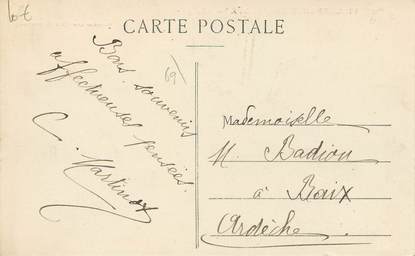 Lot
CARTE POSTALE
69
Bons souvenirs
affectueuses pensées.
C. Martinox
Mademoiselle
M. Badiou
à Baix
Ardèche